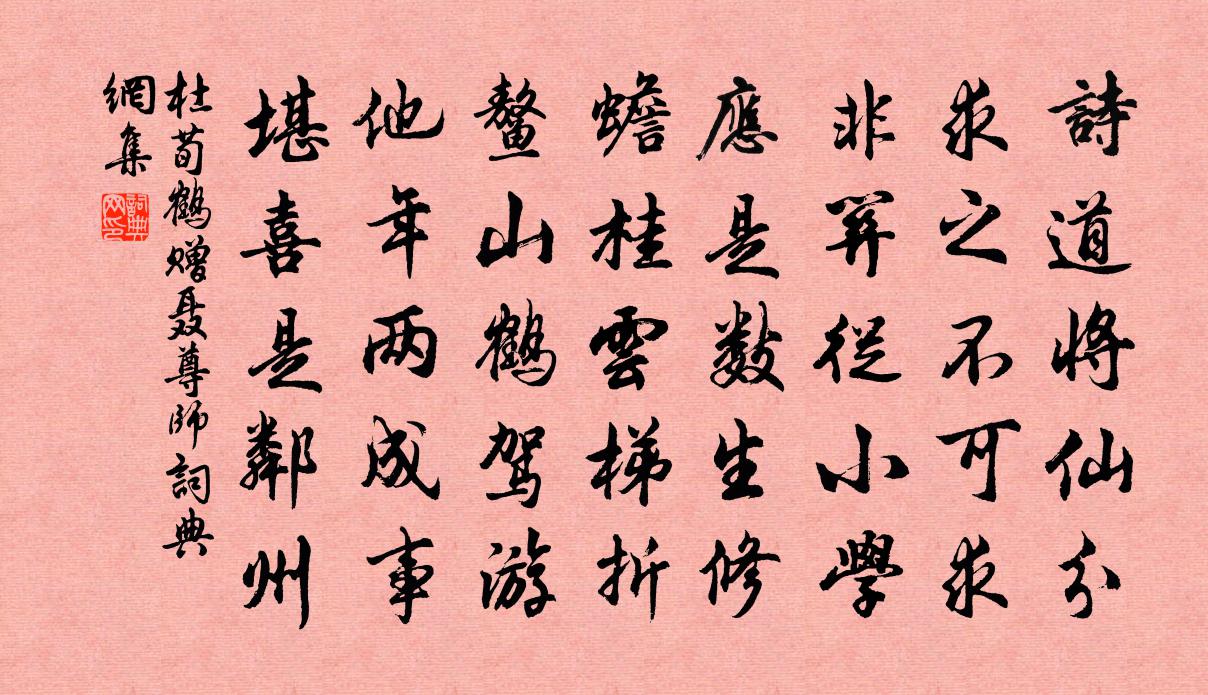 詩道將仙分
求之不可求
非算從小學
應是數生修
蟾桂雲梯折
鰲山鶴駕游
他年两成事
堪喜是鄰州
杜荀鶴赠聂尊師詞典
網集
詞典
网印